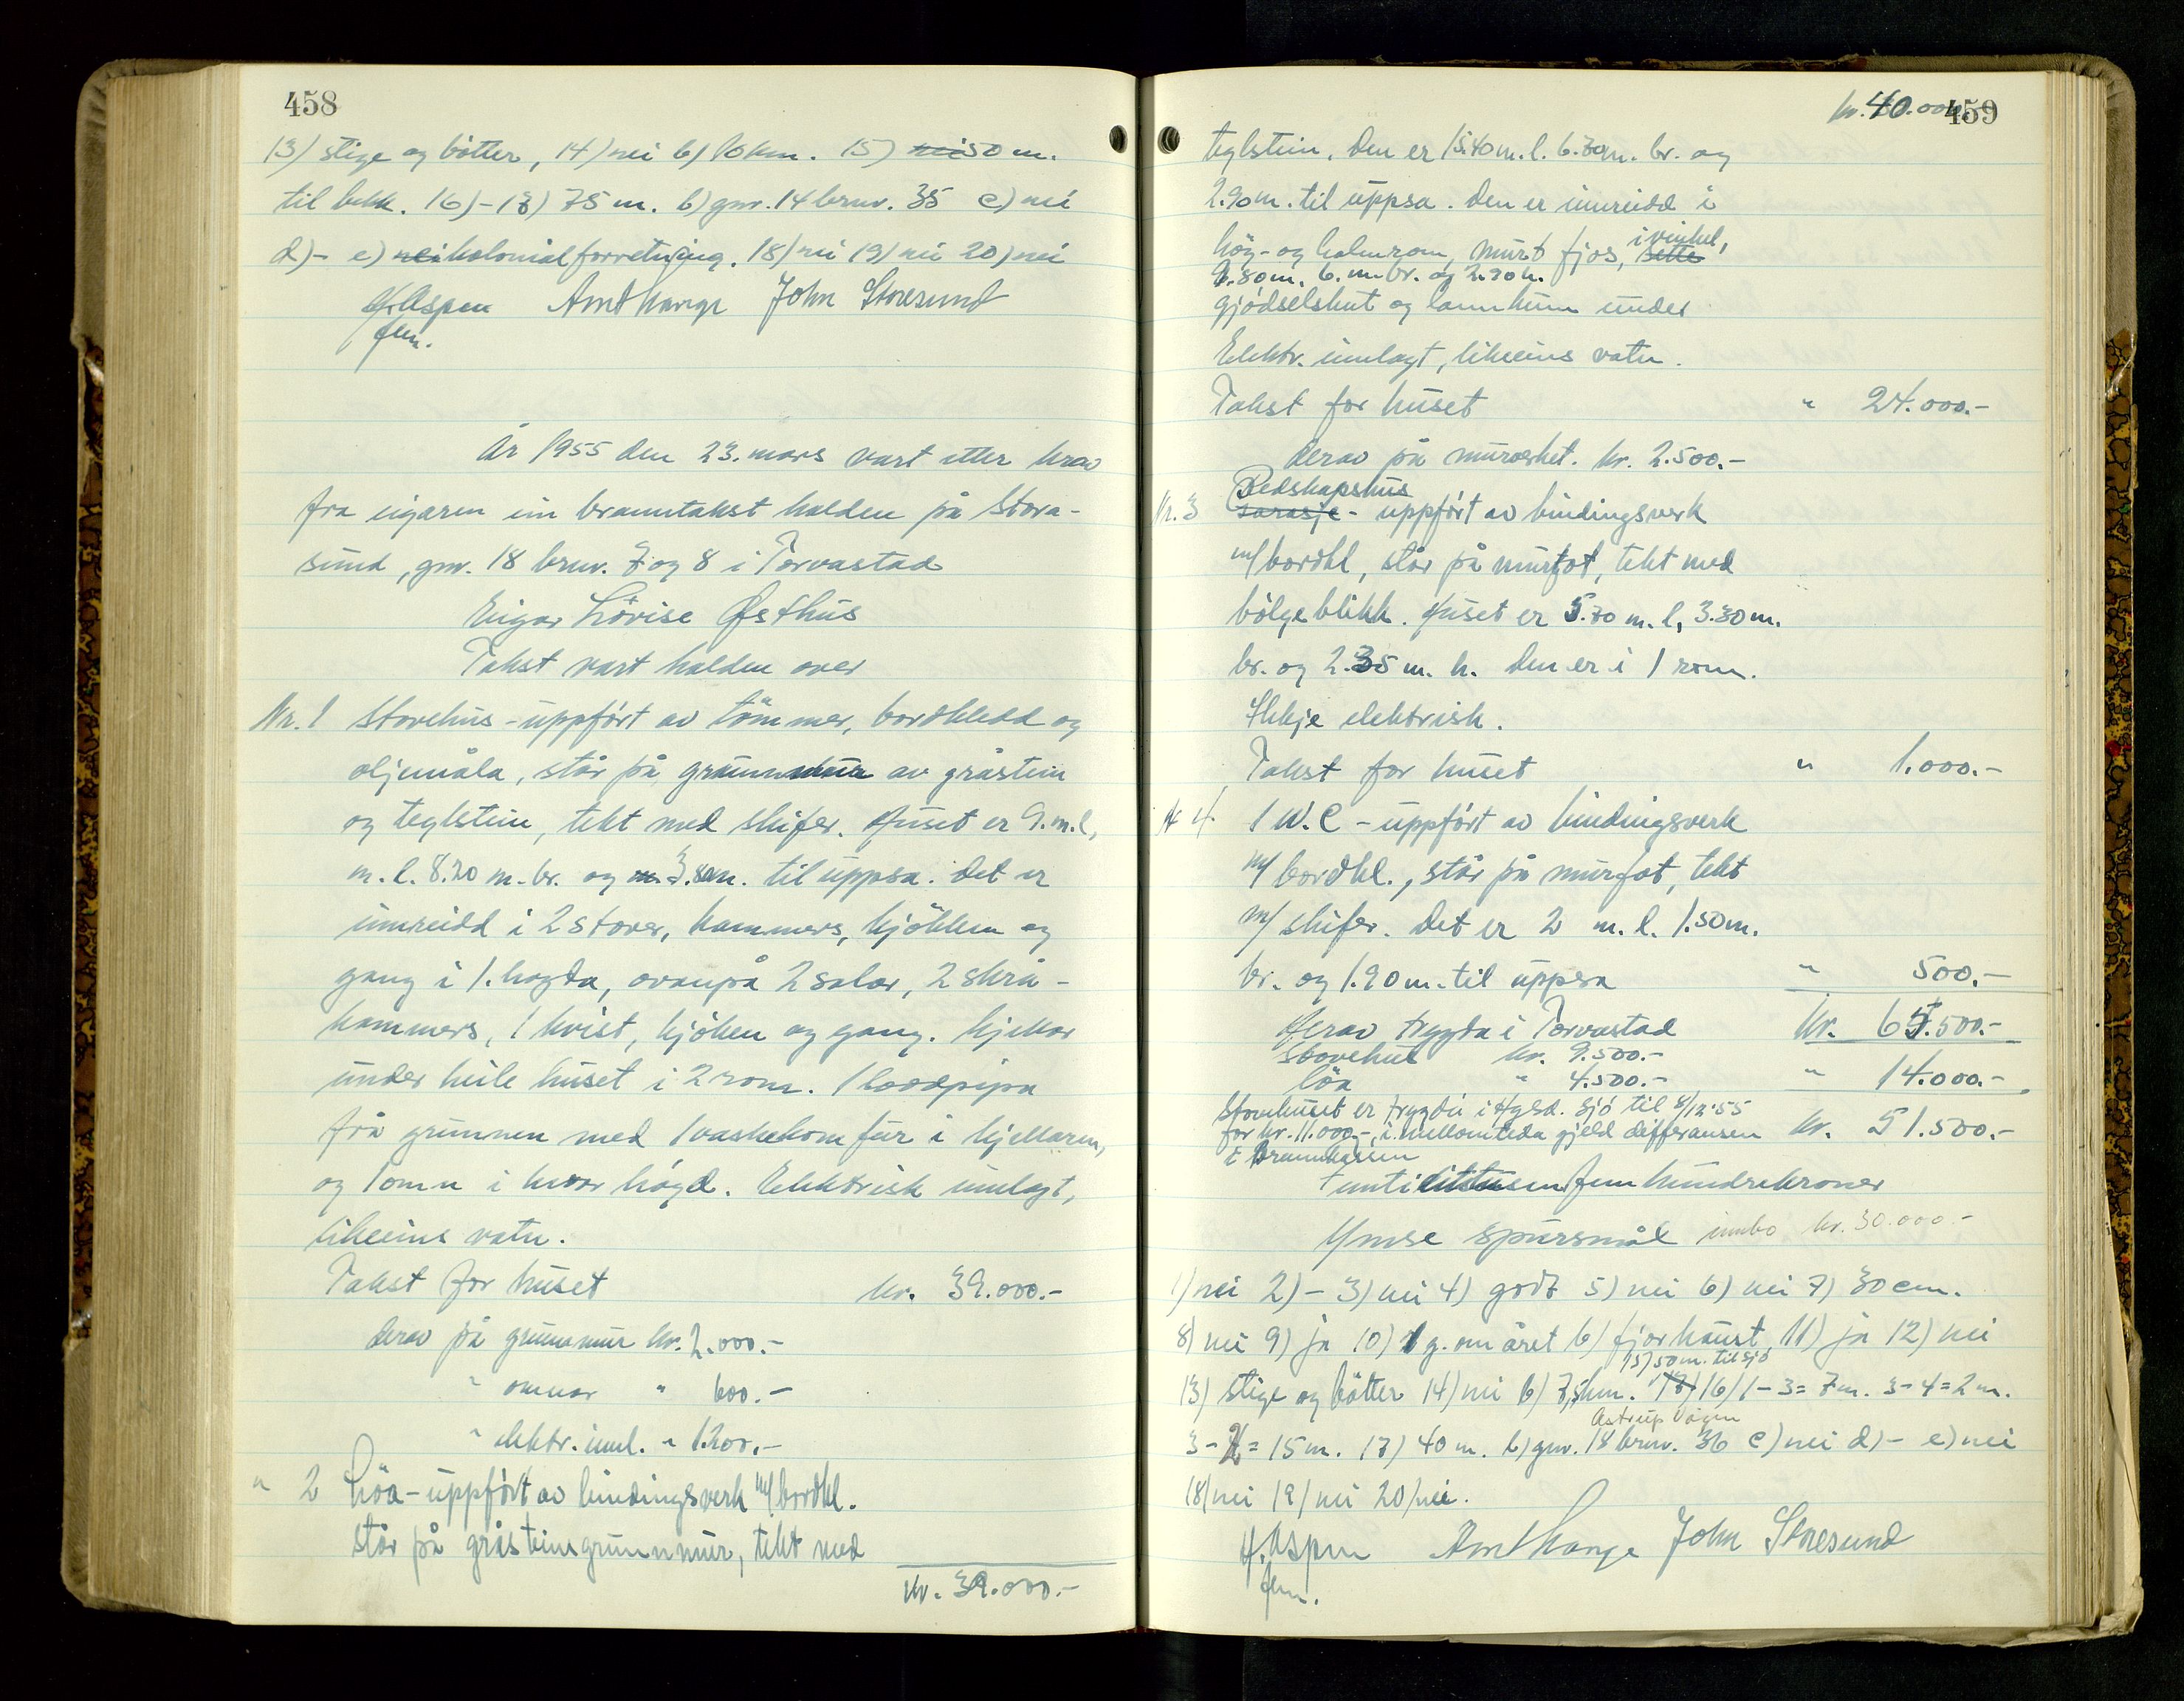 458
13) stige og bøtter, 14) nei b) 16 km. 15) nei 50 m.
til bekk. 16) - 17) 75 m. b) gnr. 14 brnr. 35 c) nei
d) - e) nei kolonialforretning. 18) nei 19) nei 20) nei
H. Aspen John Storesund
fm.
År 1955 den 23. mars vart etter krav
fra eigaren ein branntakst halden på Stora-
sund, gnr. 18 brnr. 7 og 8 i Torvastad
Eigar Lovise Østhus
Takst vart halden over
Nr. 1 Stovehus - uppført av tømmer, bordkledd og
oljemåla, står på grunnmur av gråstein
og teglstein, tekt med skifer. Huset er 9. m. l,
m. l. 8.20 m. br. og 3.80 m. til uppsa. Det er
innreidd i 2 stover, kammers, kjøkken og
gang i 1. høgda, ovanpå 2 salar, 2 skrå-
kammers, 1 kvist, kjøken og gang. Kjellar
under heile huset i 2 rom. 1 loddpipa
frå grunnen med 1 vaskekomfur i kjellaren,
og 1 omn i kvar høgd. Elektrisk innlagt,
likeeins vatn.
Takst for huset kr. 39.000.-
derav på grunnmur kr. 2.000.-
" omnar " 600.-
" elektr. innl. " 1.200.-
" 2 Løa - uppført av bindingsverk m/bordkl.
står på gråsteinsgrunnmur, tekt med
kr. 39.000.-
459
teglstein. Den er 15.40 m. l. 6.30 m. br. og
2.90 m. til uppsa. Den er innreidd i
høy- og halmrom, murt fjøs, i vinkel, sette
9.80 m. 6. m. br. og 2.20 h.
gjødselshut og lannkum under
Elektr. innlagt, likeeins vatn.
Takst for huset " 24.000.-
derav på murarket. kr. 2.500.-
Redskapshus
Nr. 3 garasje - uppført av bindingsverk
m/bordkl, står på murfot, tekt med
bølgeblikk. Huset er 5.70 m. l, 3.30 m.
br. og 2.35 m. h. Den er i 1 rom.
Ikkje elektrisk.
Takst for huset " 1.000.-
4 1 W.C - uppført av bindingsverk
m/bordkl., står på murfot, tekt
m/ skifer. Det er 2 m. l. 1.50 m.
br. og 1.90 m. til uppsa " 500.-
Herav trygda i Torvastad kr. 64.500.-
Stovehus kr. 9.500.-
løa " 4.500.- " 14.000.-
Stovehuset er trygda i Hgsd. Sjø til 8/12-55
for kr. 11.000.-, i mellomtida gjeld differansen kr. 51.500.-
i Brannkassen
femhundrekroner
Ymse spursmål innbo kr. 30.000.-
1) nei 2) - 3) nei 4) godt 5) nei 6) nei 7) 30 cm.
8) nei 9) ja 10) 1 g. om året b) fjor haust 11) ja 12) nei
15) 50 m. til sjø
13) stige og bøtter 14) nei b) 7,5 km. 16) 1-3= 7 m. 3-4=2 m.
Astrup Vågen
3-2= 15 m. 17) 40 m. b) gnr. 18 brnr. 36 c) nei d) - e) nei
18) nei 19) nei 20) nei.
H. Aspen John Storesund
fm.